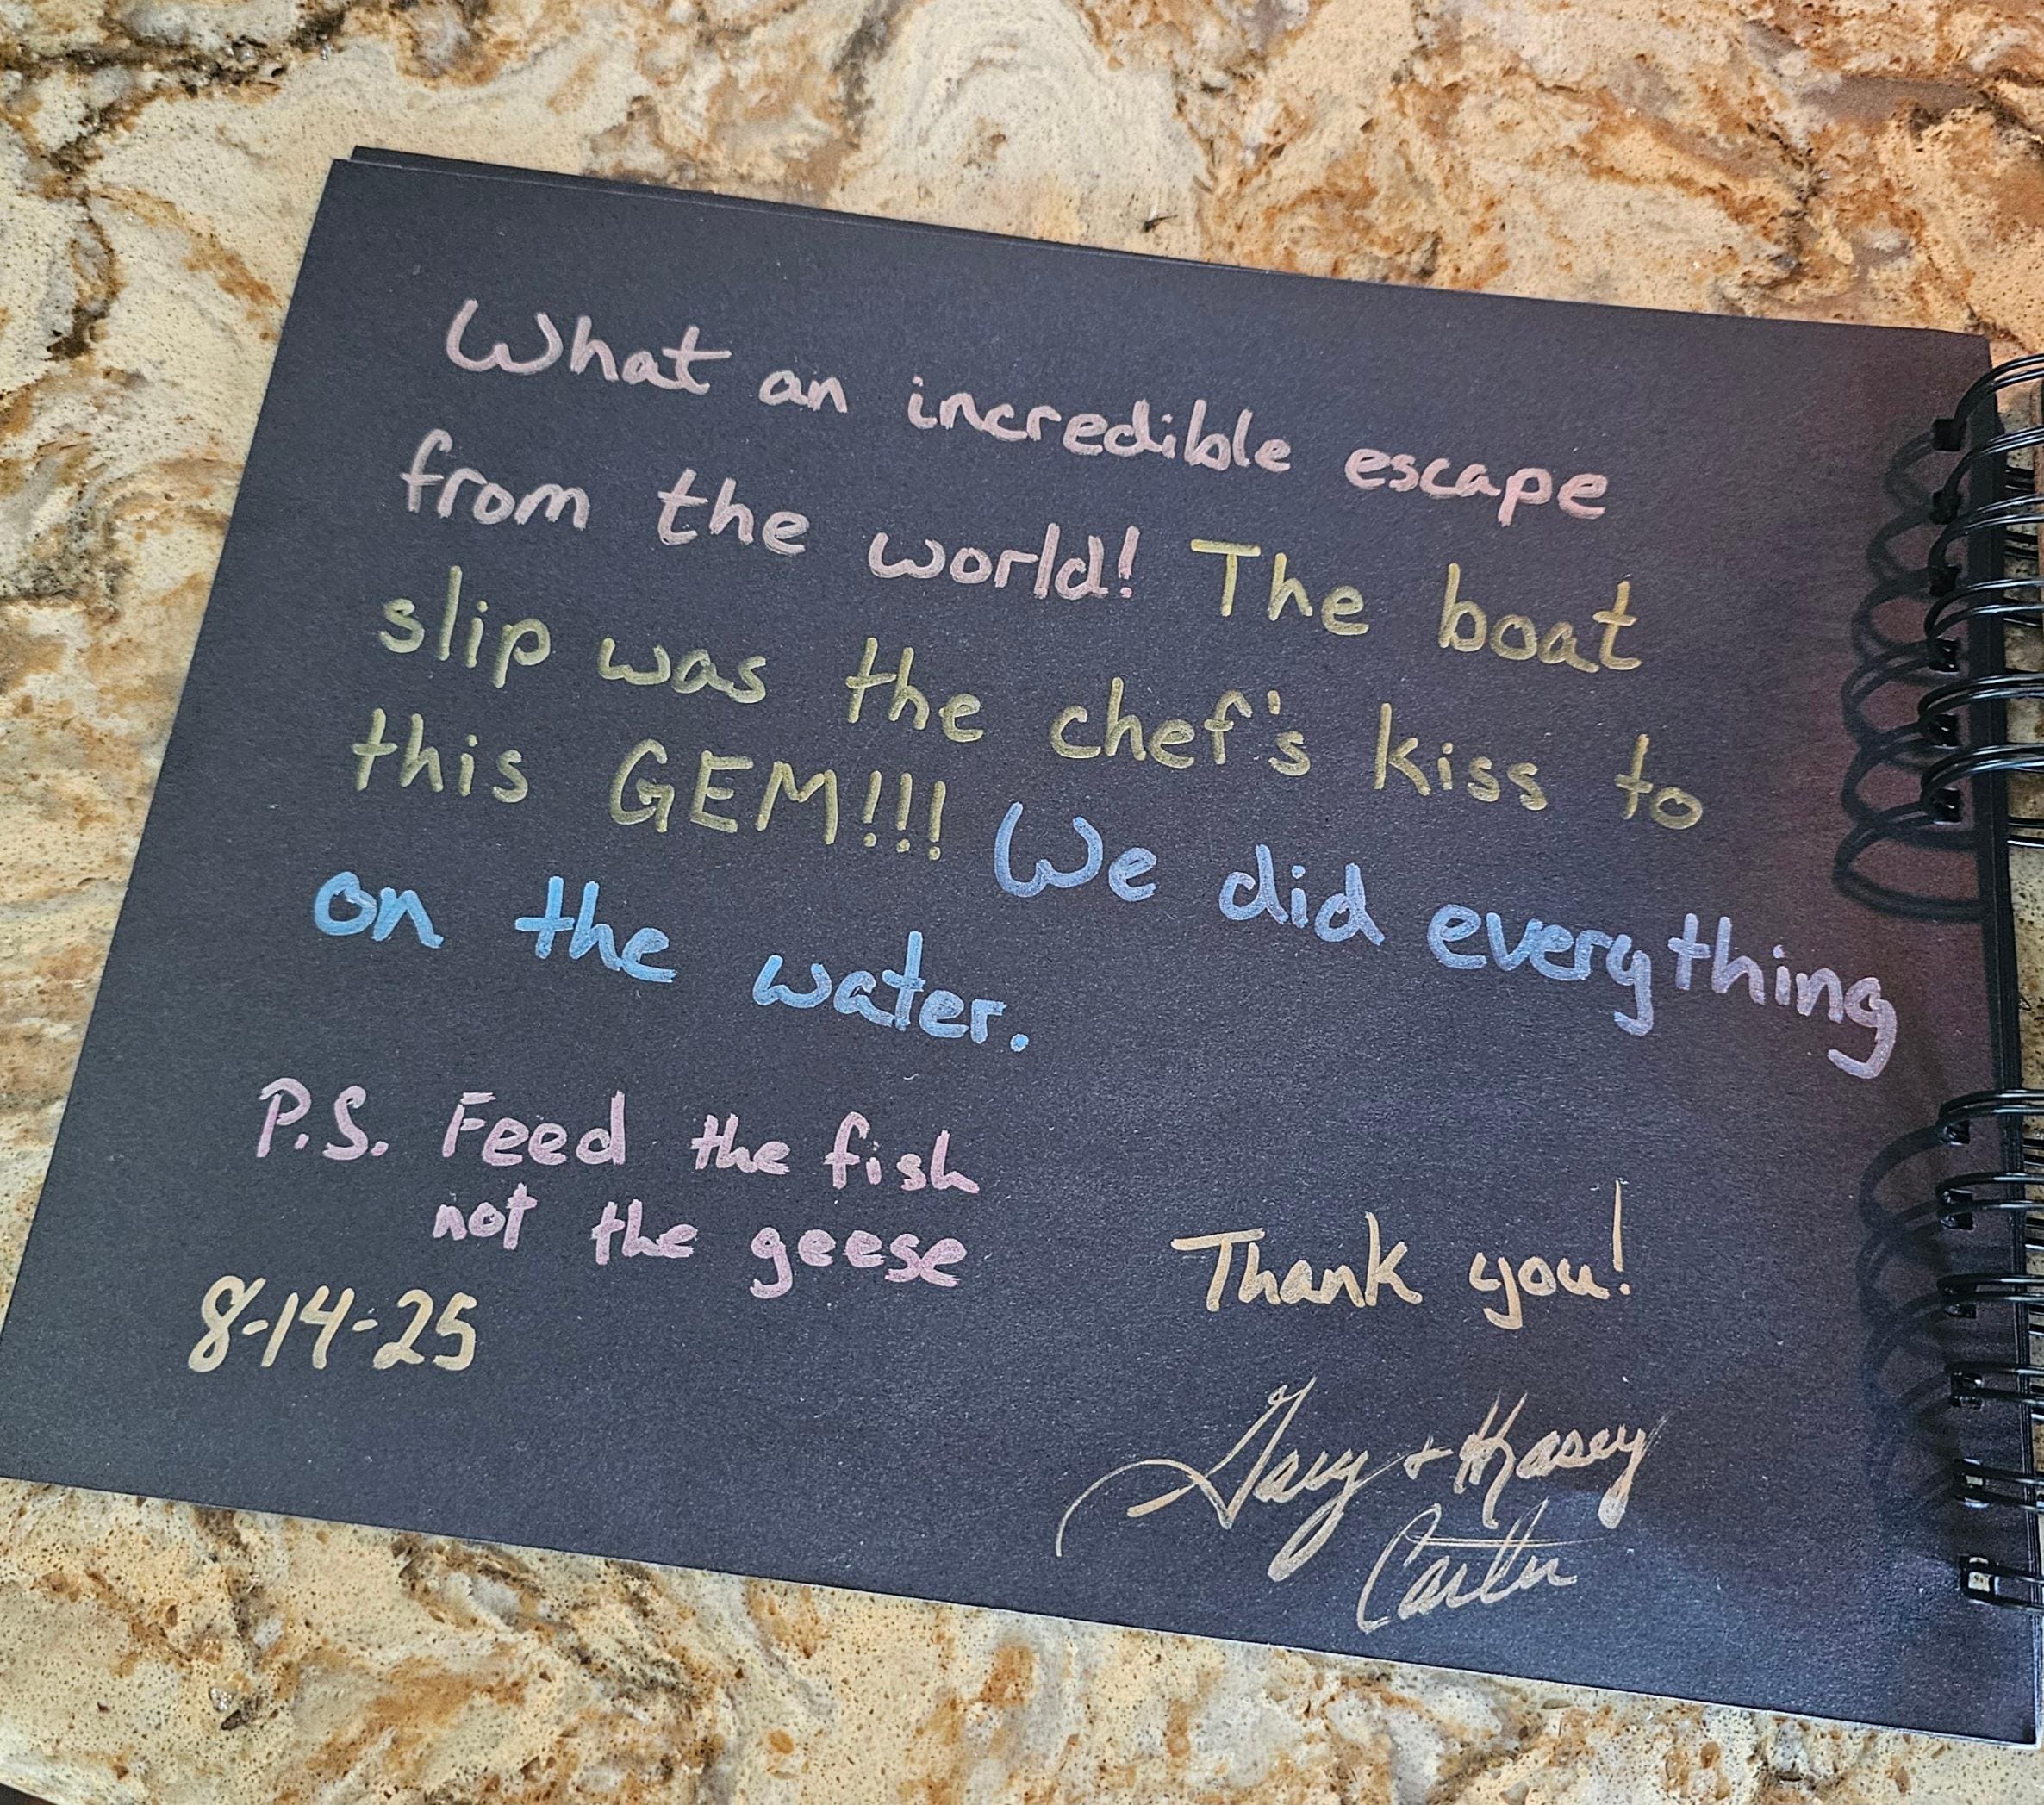 What an incredible escape
from the world! The boat
slip was the chef's kiss to
this GEM!!! We did everything
on the water.
P.S. Feed the fish
not the geese
8-14-25
Thank you!
Gary + Kasey
Carter